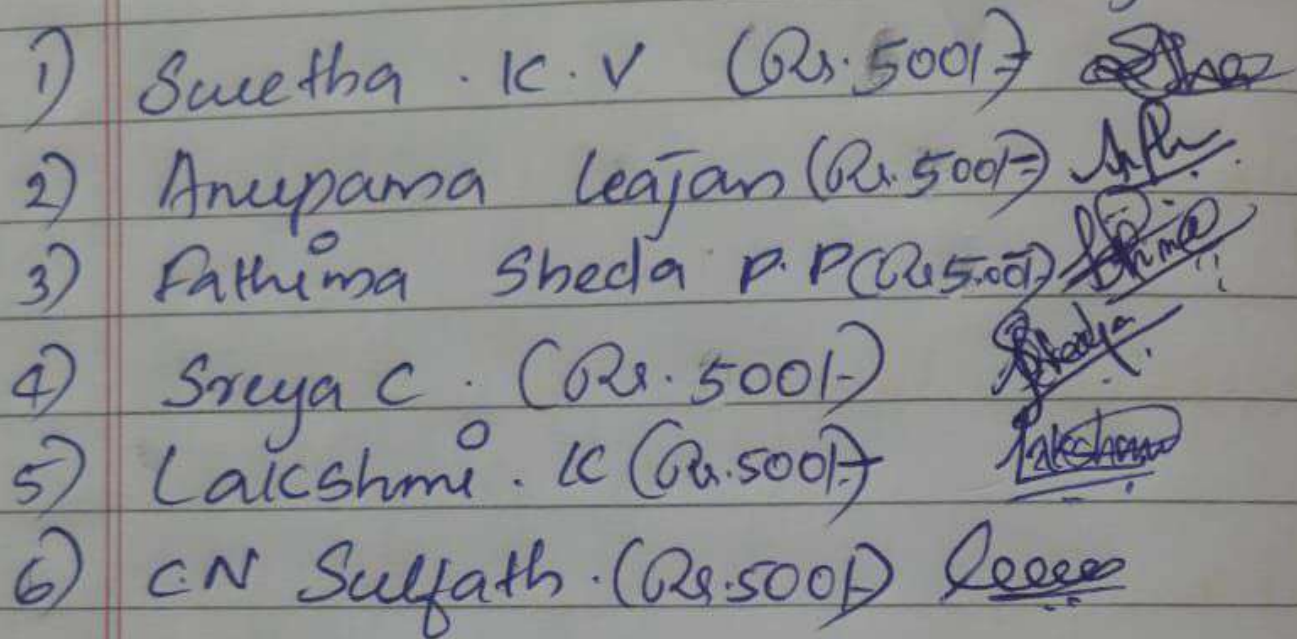 1) Swetha . K . V (Rs. 500/-)
2) Anupama Rajan (Rs. 500/-)
3) Fathima Sheda P. P (Rs 5.00/-)
4) Sreya C . (Rs. 500/-) Sreeya
5) Lakshmi . K (Rs. 500/-) Lakshmi
6) C.N Sulfath . (Rs. 500/-)